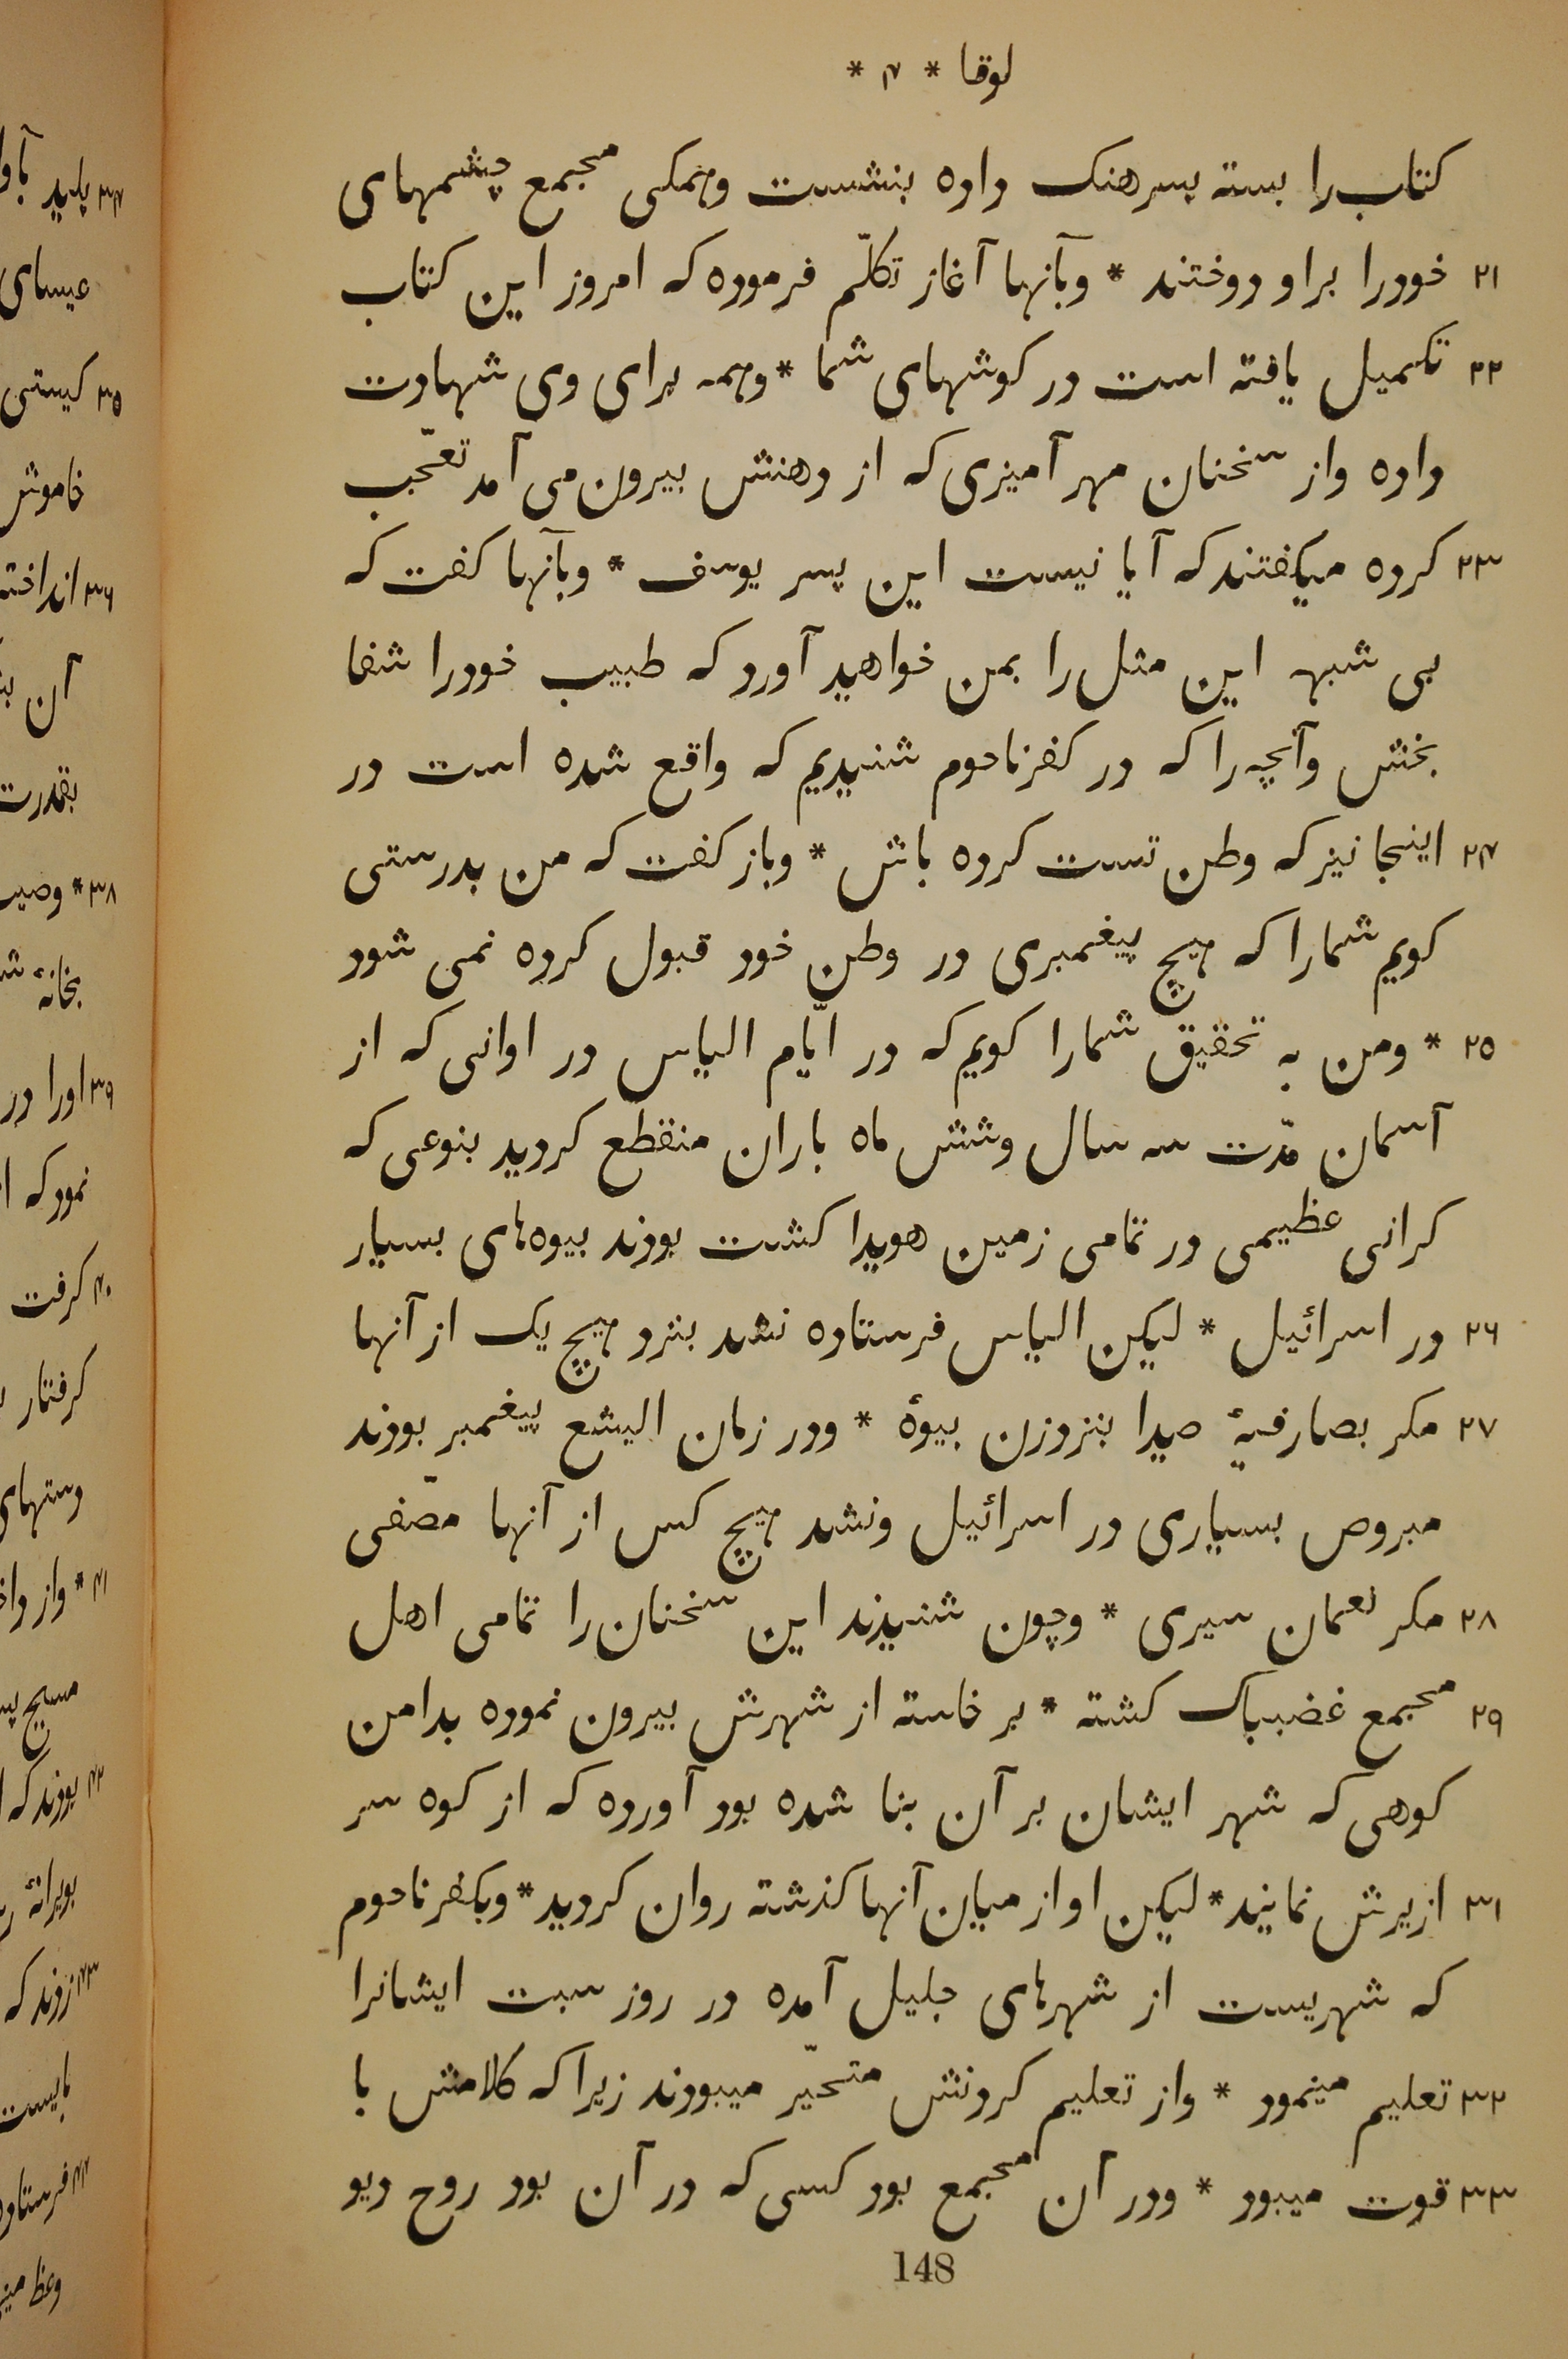 لوقا * ۴ *
کتاب را بسته بسرهنک داده بنشست وهمکی مجمع چشمهای
۲۱ خودرا براو دوختند * وبآنها آغاز تکلّم فرموده که امروز این کتاب
۲۲ تکمیل یافته است در کوشهای شما * وهمه برای وی شهادت
داده واز سخنان مهر آمیزی که از دهنش بیرون می آمد تعجّب
۲۳ کرده میکفتند که آیا نیست این پسر یوسف * وبآنها کفت که
بی شبهه این مثل را بمن خواهید آورد که طبیب خودرا شفا
بخش وآنچه را که در کفرناحوم شنیدیم که واقع شده است در
۲۴ اینجا نیز که وطن تست کرده باش * وباز کفت که من بدرستی
کویم شمارا که هیچ پیغمبری در وطن خود قبول کرده نمی شود
۲۵ * ومن به تحقیق شمارا کویم که در ایّام الیاس در اوانی که از
آسمان مدّت سه سال وشش ماه باران منقطع کردید بنوعی که
کرانی عظیمی در تمامی زمین هویدا کشت بودند بیوه‌های بسیار
۲۶ در اسرائیل * لیکن الیاس فرستاده نشد بنزد هیچ یک از آنها
۲۷ مکر بصارفیهٔ صیدا بنزد زن بیوهٔ * ودر زمان الیشع پیغمبر بودند
مبروص بسیاری در اسرائیل ونشد هیچ کس از آنها مصّفی
۲۸ مکر نعمان سیری * وچون شنیدند این سخنان را تمامی اهل
۲۹ مجمع غضبناک کشته * بر خاسته از شهرش بیرون نموده بدامن
کوهی که شهر ایشان بر آن بنا شده بود آورده که از کوه سر
۳۱ ازیرش نمایند * لیکن او از میان آنها کذشته روان کردید * وبکفرناحوم
که شهریست از شهرهای جلیل آمده در روز سبت ایشانرا
۳۲ تعلیم مینمود * واز تعلیم کردنش متحیّر میبودند زیرا که کلامش با
۳۳ قوت میبود * ودر آن مجمع بود کسی که در آن بود روح دیو
148
۳۴ پلید
عیسای
۳۵ کیستی
خاموش
۳۶
آن
بقدرت
۳۸ *
بخانهٔ
۳۹ اورا در
نمود که
۴۰ کرفت
کرفتار
دستهای
۴۱ * واز
مسیح
۴۲ بودند که
بویرانهٔ
۴۳ زدند که
بایست
۴۴
وعظ